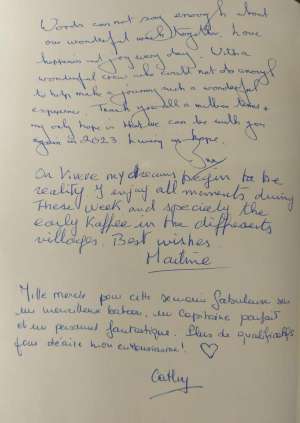 Words cannot say enough about
our wonderful week together. Love
happiness and joy every day. With a
wonderful crew who could not do enough
to help make a journey such a wonderful
experience. Thank you all a million times &
my only hope is that we can be with you
again in 2023 living in hope.
On Vivere my dreams begin to be
reality I enjoy all moments during
These week and specialy the
early Kaffee in the differents
villages. Best wishes.
Martine
Mille mercis pour cette semaine fabuleuse sur
un merveilleux bateau, un Capitaine parfait
et un personnel fantastique. Plus de qualificatifs
pour décrire mon enthousiasme!
Cathy